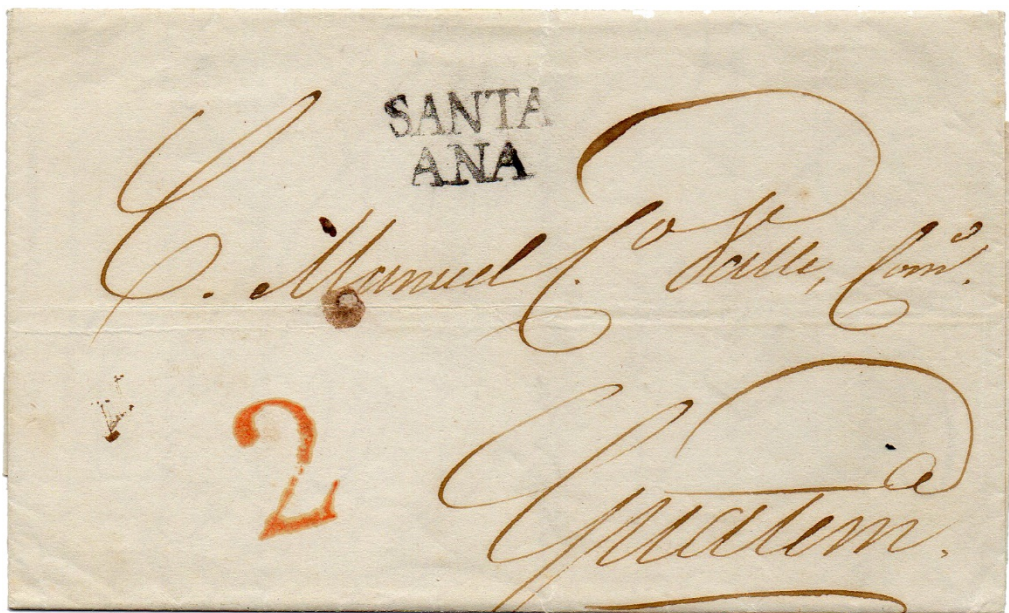 SANTA
ANA
C. Manuel C.º Valle, Com.º
2
Guatem.ª